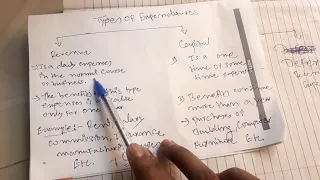 Types of Expenditures
Revenue
→ Is a daily expenses
in the normal course
or business.
→ The benefits this type
expenses is
only for one
Example:- Rent, salary
commission, Insurance
manufacture
Etc.
Capital
→ Is a one
time or some
time expenses
→ Benefits continue
more than a year
→ purchases of
Building Computer
Furniture Etc